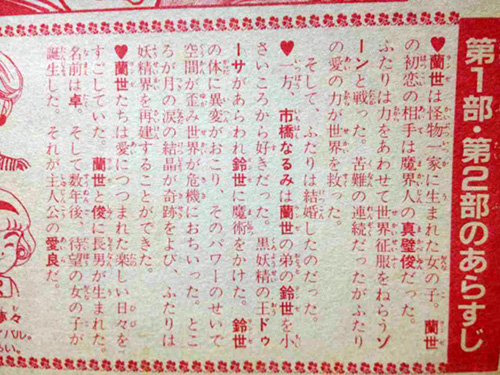 第1部・第2部のあらすじ
♥蘭世は怪物一家に生まれた女の子。蘭世
の初恋の相手は魔界人の真壁俊だった。
ふたりは力をあわせて世界征服をねらうゾ
ーンと戦った。苦難の連続だったがふたり
の愛の力が世界を救った。
そして、ふたりは結婚したのだった。
♥一方、市橋なるみは蘭世の弟の鈴世を小
さいころから好きだった。黒妖精の王ドゥ
ーサがあらわれ鈴世に魔術をかけた。鈴世
の体に異変がおこり、そのパワーのせいで
空間が歪み世界が危機におちいった。とこ
ろが月の涙の結晶が奇跡をよび、ふたりは
妖精界を再建することができた。
♥蘭世たちは愛につつまれた楽しい日々を
すごしていた。蘭世と俊に長男が生まれた。
名前は卓。そして数年後、待望の女の子が
誕生した。それが主人公の愛良だ。
バル。